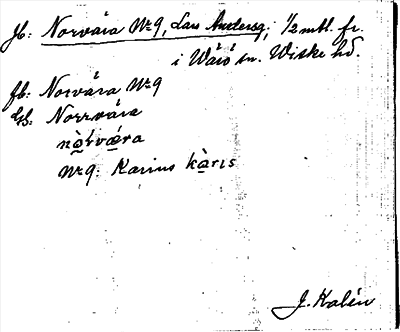 Jb: Norvära № 9, Lars Andersg; 1/2 mtl. fr.
i Wärö sn. Wiske hd.
fb: Norvära № 9
Gb: Norrvära
nòrværa
№ 9. Karins kàris
J. Kalén